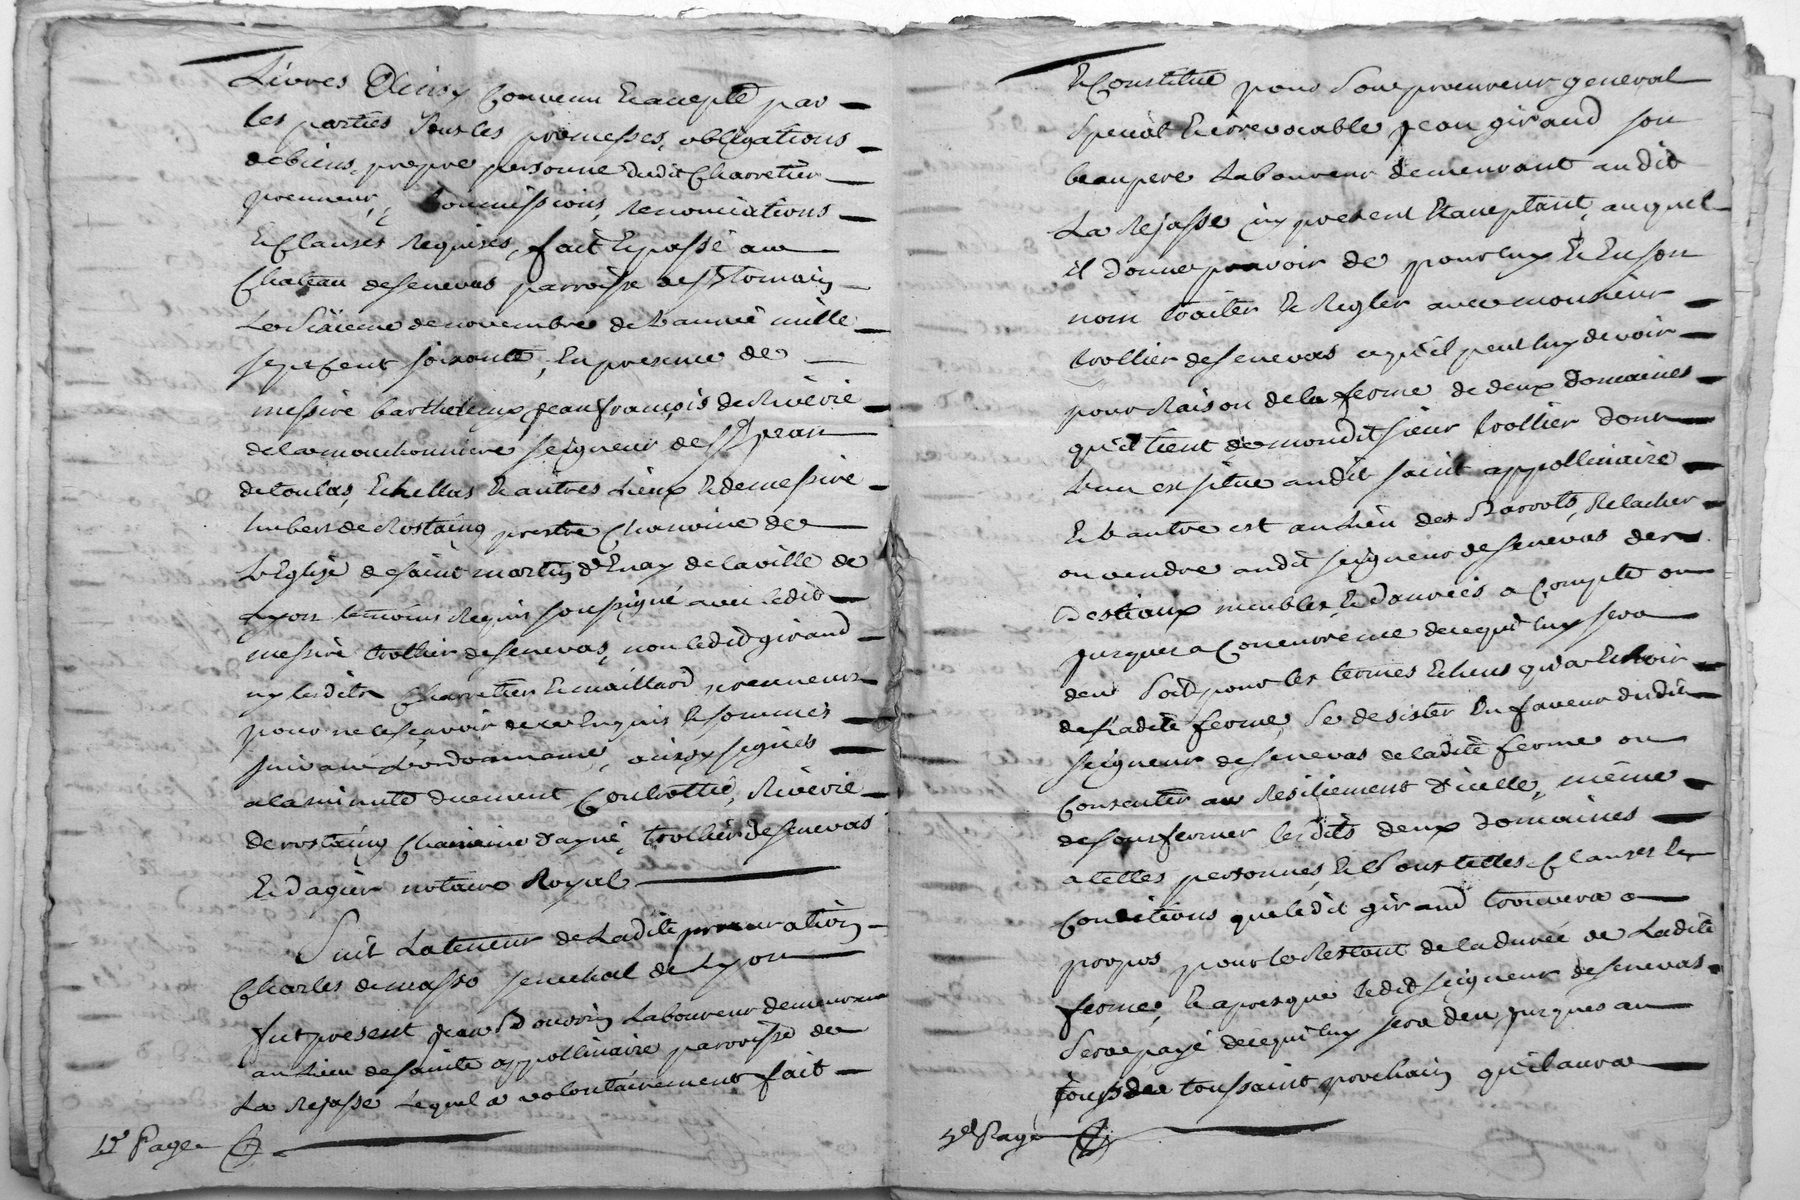 Livres Ainsy Convenu Et accepté par
les parties sous les promesses, obligations
de biens, propre personne dudit Charretier
preneur, soumissions, Renonciations
Et Clauses Requises, fait Et passé au
Chateau de senevas parroisse de st Romain
Le Sixieme de novembre de L'année mille
sept cent soixante, En presence de
messire barthelemy jean françois de Riverie
de la mouchonniere seigneur de st jean
de toulas, Echallas Et autres Lieux Et de messire
hubert de Rostaing prestre Chanoine de
L'Eglise de saint martin d'Enay de la ville de
Lyon temoins Requis soussigné avec ledit
messire trollier de senevas, non ledit giraud
ny lesdits Charretier Et maillard preneurs
pour ne le sçavoir de ce Enquis Et sommés
suivant L'ordonnance, ainsy signés
a la minute duement Contrôllée, Riverie
de rostaing Chanoine d'aynè, trollier de senevas
Et dagier notaire Royal
Suit La teneur de Ladite procuration
Charles de masso senechal de Lyon
fut present jean Bouvrin Laboureur demeurant
au Lieu de sainte appollinaire parroisse de
La Rejasse Lequel a volontairement fait
1re Page
Et Constitué pour Son procureur general
Special Et irrevocable jean giraud son
beaupere Laboureur demeurant audit
La Rejasse icy present Et acceptant, auquel
il donne pouvoir de pour luy Et En son
nom traiter Et Regler avec monsieur
trollier de senevas ce qu'il peut luy devoir
pour Raison de la ferme de deux domaines
qu'il tient de mondit sieur trollier dont
L'un est situé audit saint appollinaire
Et L'autre est au Lieu des Barrots, Relacher
ou vendre audit seigneur de senevas des
Bestiaux meubles Et danrées a Compte ou
jusques a Concurrence de ce qui luy sera
deu Soit pour les termes Echeus qu'a Echoir
de sadite ferme, Se desister En faveur dudit
seigneur de senevas de ladite ferme ou
Consentir au Resiliement d'icelle, même
de sousfermer lesdits deux domaines
a telles personnes, Et sous telles Clauses Et
Conditions que ledit giraud trouvera a
propos pour le Restant de la durée de Ladite
ferme, Et apres que ledit seigneur de senevas
Sera payé de ce qui luy sera deu jusques au
jour de toussaint prochain qu'il aura
Page